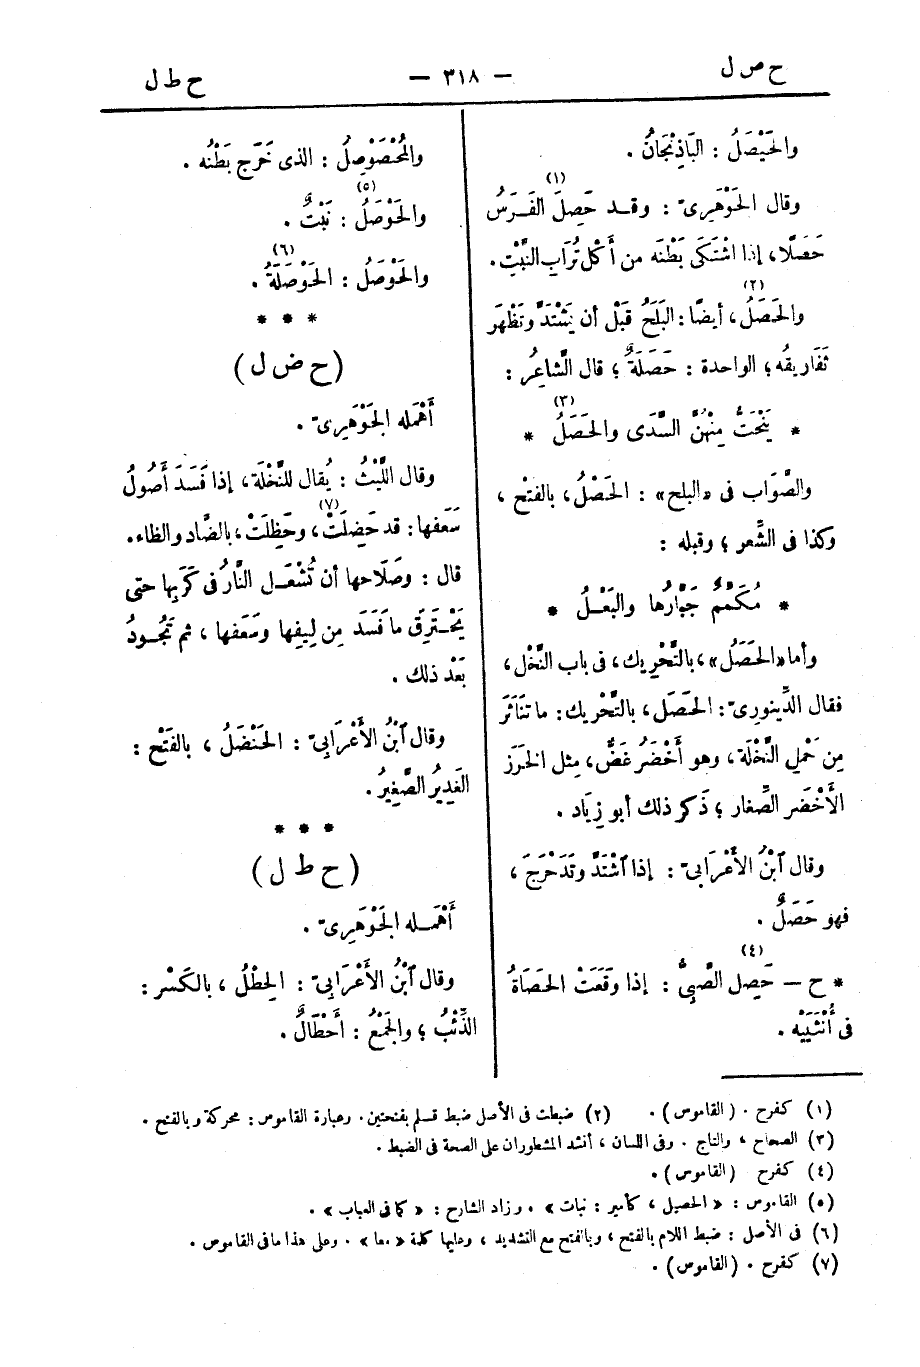 ح ص ل — ٣١٨ — ح ط ل
والحَيْصَلُ : البَاذِنْجَانُ .
وقال الجَوْهَرِىّ : وقد حَصِلَ(١) الفَرَسُ
حَصَلًا، إذا اشْتَكَى بَطْنَه من أَكْل تُرَابِ النَّبْتِ.
والحَصَلُ(٢)، أيضًا: البَلَحُ قَبْل أن يَشْتَدَّ وتَظْهَر
ثَفَارِيقُه ؛ الواحدة : حَصَلَةٌ ؛ قال الشَّاعِرُ :
* يَنْحَتُّ مِنْهُنَّ السَّدَى والحَصَلُ(٣) *
والصَّوَاب فى «البلح» : الحَصْلُ، بالفتْح ،
وكذا فى الشِّعر ؛ وقبله :
* مُكَمَّمٌ جَبَّارُها والبَعْـلُ *
وأما «الحَصَلُ»، بالتَّحْرِيك، فى باب النَّخْل،
فقال الدِّينورىّ : الحَصَل، بالتَّحْريك: ما تَنَاثَرَ
مِن حَمْلِ النَّخْلَة، وهو أَخْضَرُ غَضٌّ، مِثل الخَرَز
الأَخْضَر الصِّغار ؛ ذَكر ذلك أبو زِيَاد .
وقال ٱبْنُ الأَعْرَابىّ : إذا ٱشْتَدَّ وتَدَحْرَجَ ،
فهو حَصَلٌ .
* ح — حَصِل(٤) الصَّبِىُّ : إذا وقَعَتْ الحَصَاةُ
فى أُنْثَيَيْه .
والمُحْصَوْصِلُ : الذى خَرَج بَطْنُه .
والحَوْصَلُ(٥) : نَبْتٌ .
والحَوْصَلُ : الحَوْصَلَةُ(٦) .
* * *
( ح ض ل )
أَهْمَله الجَوْهَرِىّ .
وقال اللَّيْثُ : يُقال للنَّخْلَة، إذا فَسَدَ أُصُولُ
سَعَفها: قد حَضِلَتْ(٧)، وحَظِلَتْ، بالضَّاد والظاء.
قال : وصَلَاحها أن تُشْعَـل النَّارُ فى كَرَبِها حتى
يَحْـتَرِقَ ما فَسَدَ مِن لِيفِها وسَعَفها ، ثم تَجُـودُ
بَعْد ذلك .
وقال ٱبْنُ الأَعْرَابِىّ : الحَنْضَلُ ، بالفَتْح :
الغَدِيرُ الصَّغِيرُ.
* * *
( ح ط ل )
أَهْمَـله الجَوْهَرِىّ .
وقال ٱبْنُ الأَعْرَابِىّ : الحِطْلُ ، بالكَسْر :
الذِّئْبُ ؛ والجَمْعُ : أَحْطَالٌ .
(١) كفرح . (القاموس) . (٢) ضبطت فى الأصل ضبط قلم بفتحتين . وعبارة القاموس : محركة وبالفتح .
(٣) الصحاح ، والتاج . وفى اللسان ، أنشد المشطوران على الصحة فى الضبط .
(٤) كفرح (القاموس) .
(٥) القاموس : « الحصيل ، كأمير : نبات » . وزاد الشارح : « كما فى العباب » .
(٦) فى الأصل : ضبط اللام بالفتح ، وبالفتح مع التشديد ، وعليها كلمة « معا » . وعلى هذا ما فى القاموس .
(٧) كفرح . (القاموس) .